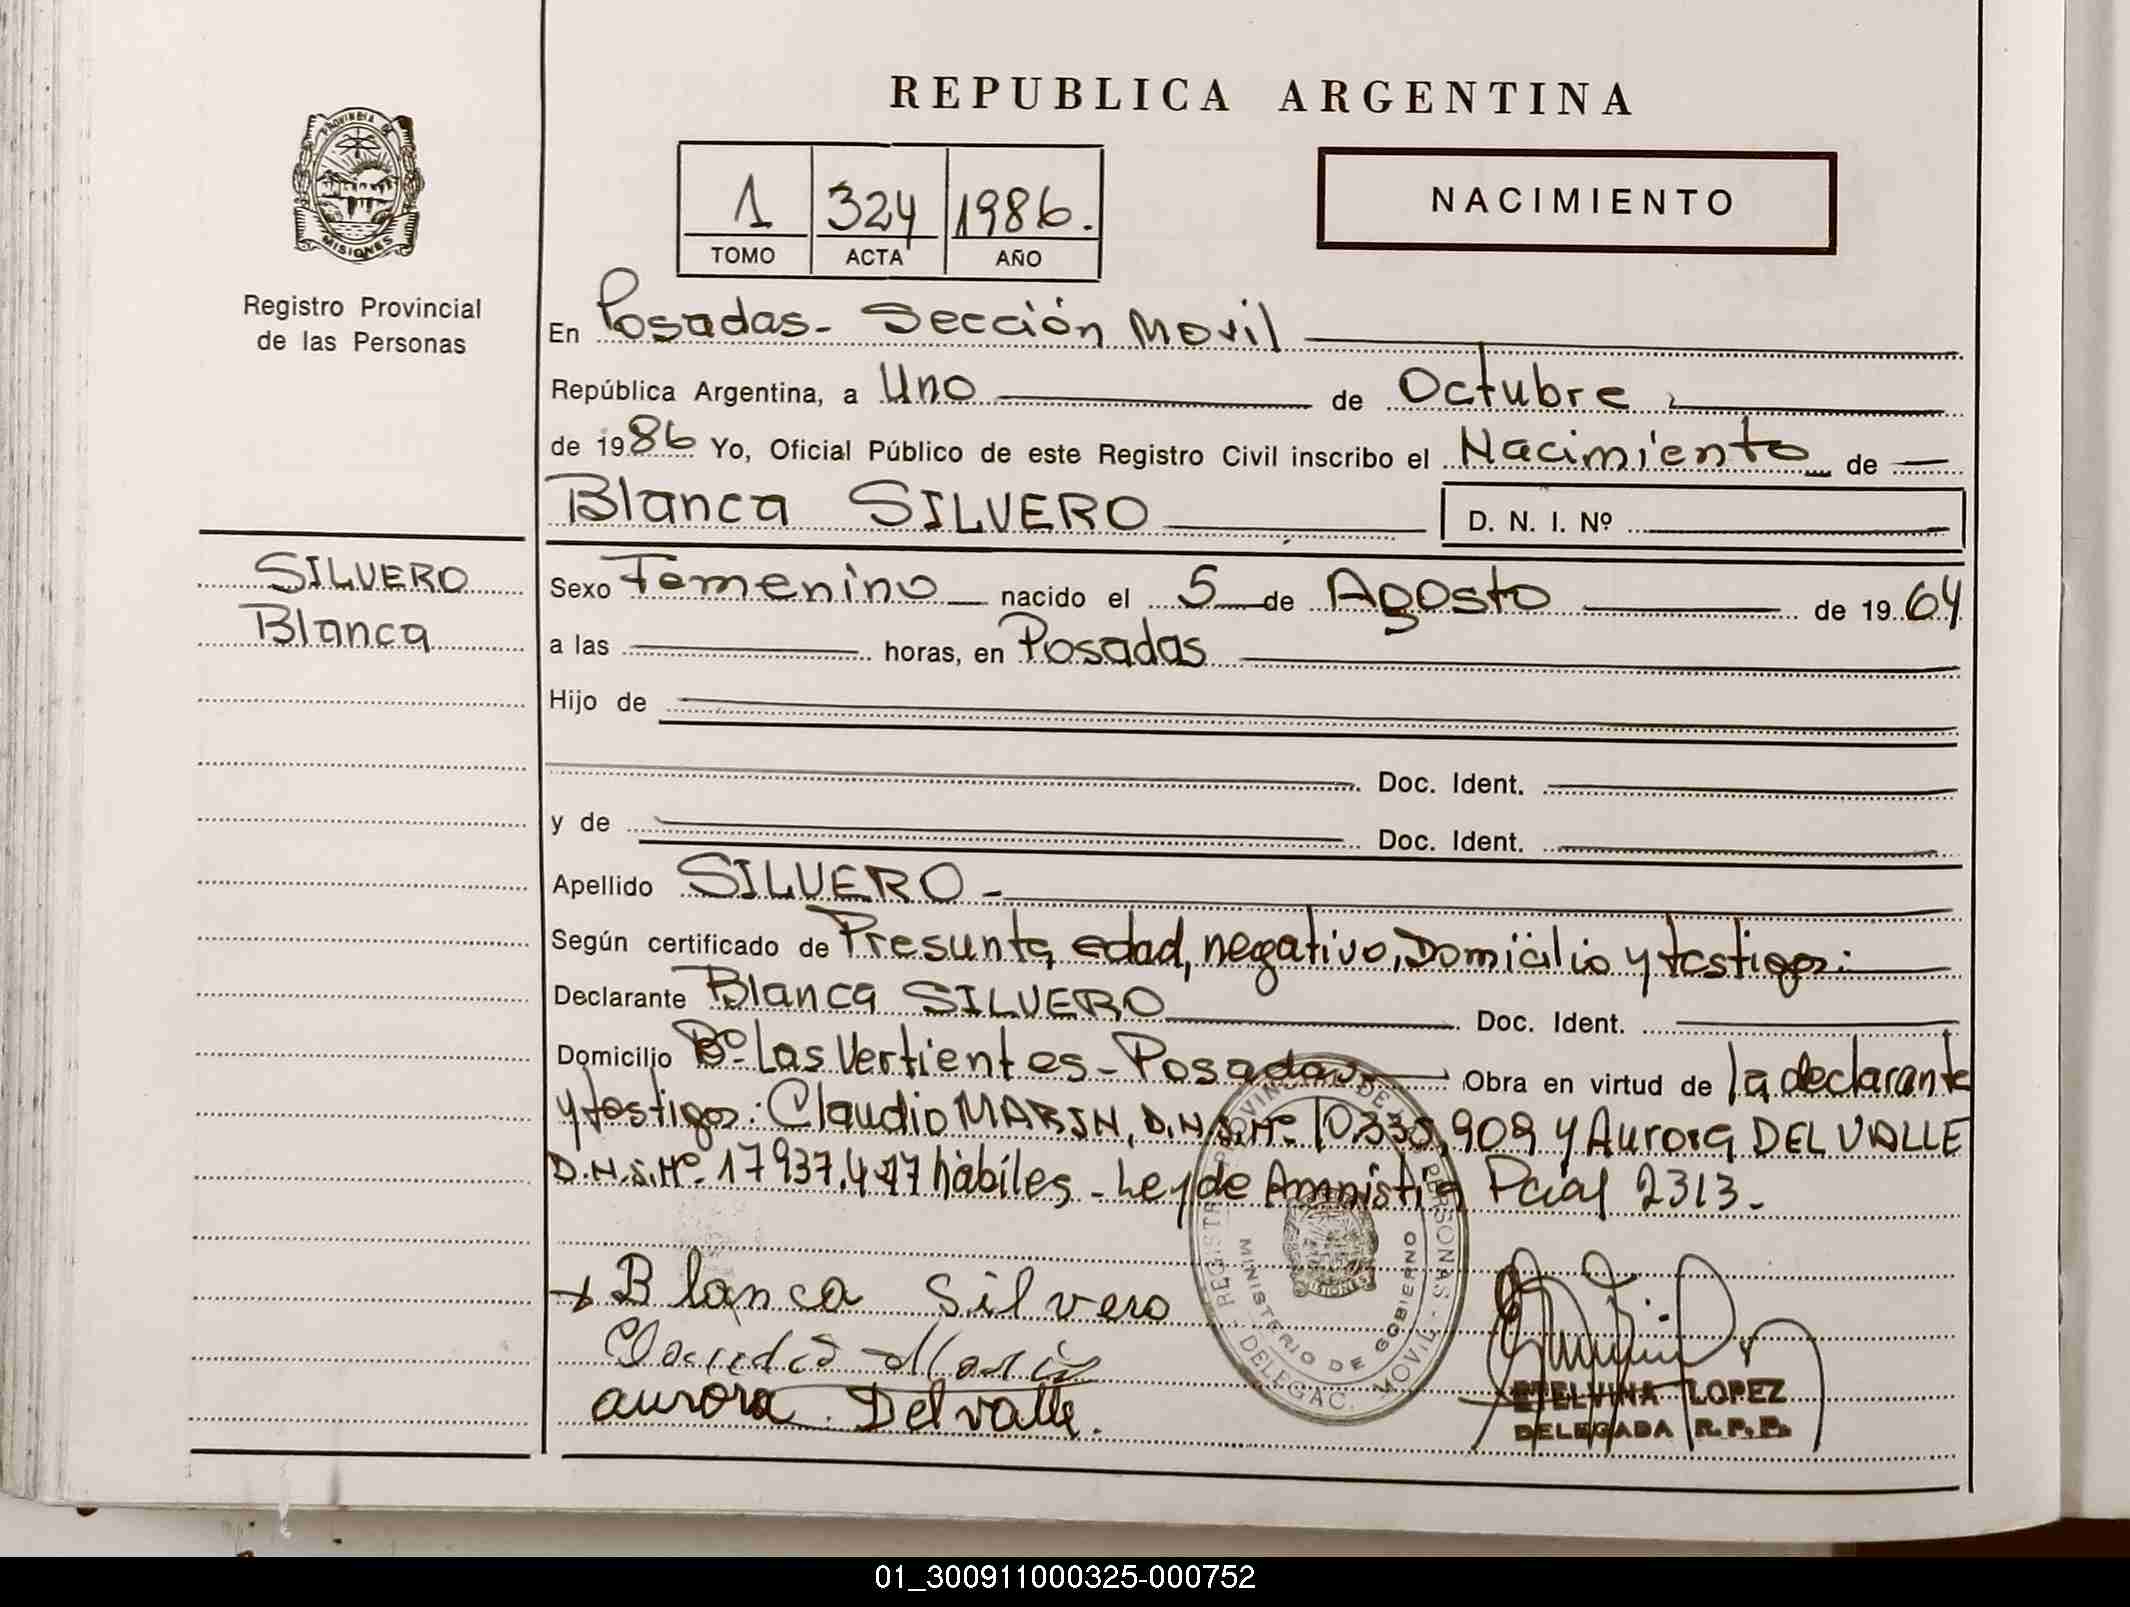 REPUBLICA ARGENTINA
PROVINCIA DE
MISIONES
Registro Provincial
de las Personas
1 324 1986.
TOMO ACTA AÑO
NACIMIENTO
En Posadas - Sección Movil
República Argentina, a Uno de Octubre
de 1986 Yo, Oficial Público de este Registro Civil inscribo el Nacimiento de
Blanca SILVERO D. N. I. Nº
SILVERO
Blanca
Sexo Femenino nacido el 5 de Agosto de 1964
a las horas, en Posadas
Hijo de
Doc. Ident.
y de Doc. Ident.
Apellido SILVERO -
Según certificado de Presunta edad, negativo, Domicilio y testigos:
Declarante Blanca SILVERO Doc. Ident.
Domicilio Bº Las Vertientes - Posadas Obra en virtud de la declarante
y testigos: Claudio MARIN, D.N.I. Nº 10.330,909 y Aurora DEL VALLE
D.N.I. Nº 17937.447 hábiles - Ley de Amnistia Pcial 2313.-
REGISTRO PROVINCIAL DE LAS PERSONAS - DELEGAC. MOVIL -
MINISTERIO DE GOBIERNO
Blanca Silvero
Claudio Marin
aurora Del valle.
ETELVINA LOPEZ
DELEGADA R.P.P.
01_300911000325-000752